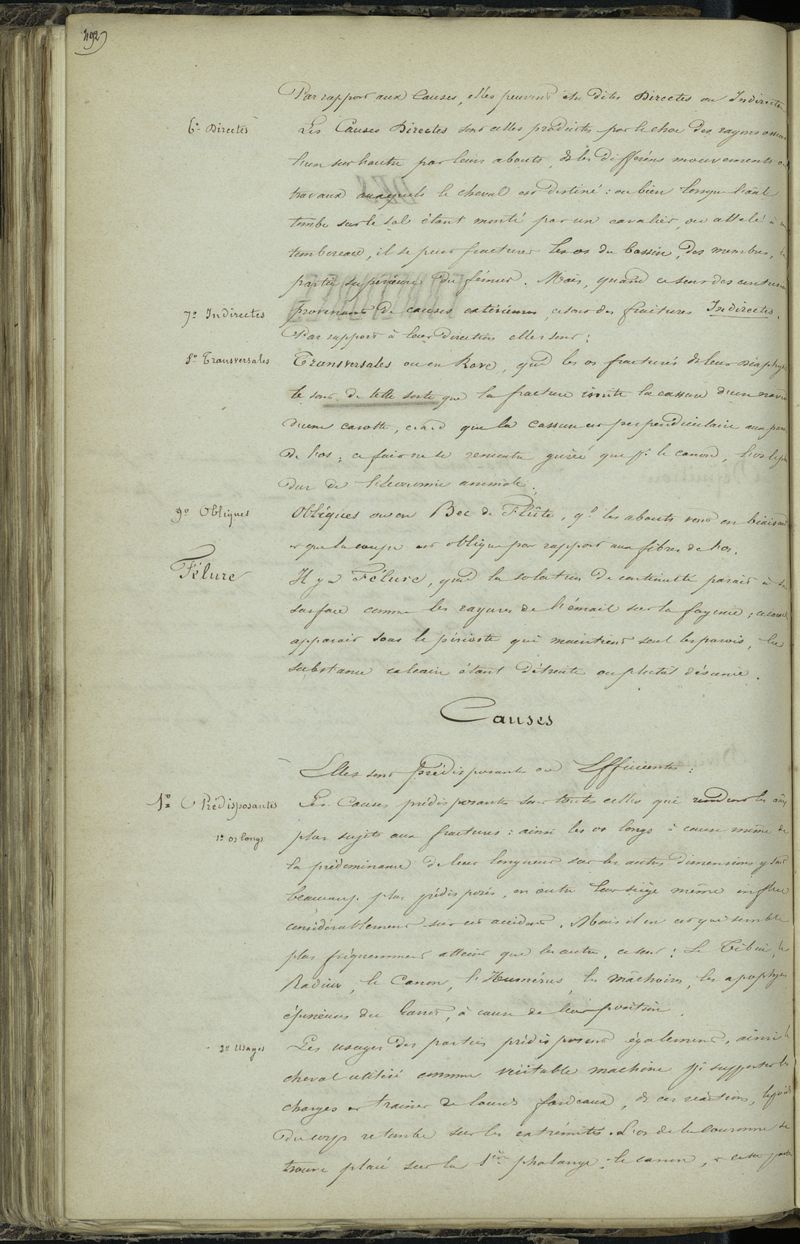 492
Par rapport aux Causes, elles peuvent être dites Directes ou Indirectes
6º Directes
Les Causes Directes sont celles produites par le choc des rayons osseux
l'un sur l'autre par leurs abouts, ds les différens mouvements et
travaux auxquels le cheval est destiné : ou bien lorsque l'anal
tombe sur le sol étant monté par un cavalier, ou attelé à un
tombereau, il se peut fracturer les os du bassin, des membres, la
partie supérieure du fémur. Mais, quand ce sont des contusions
7º Indirectes
provenant de causes extérieures, ce sont des fractures Indirectes.
Par rapport à leur direction elles sont :
8º Transversales
Transversales ou en Rave, qud les os fracturés de leur diaphyse
le sont de telle sorte que la fracture imite la cassure d'un navet
d'une carotte, c. à. d que la cassure est perpendiculaire aux parois
de l'os ; ce fait ne se remarque guère que pr le canon, l'os le plus
dur de l'économie animale.
9º Obliques
Obliques ou en Bec de Flûte, qd les abouts sont en biaisant
et que la coupe est oblique par rapport aux fibres de l'os.
Fêlure
Il y a Fêlure, qud la solution de continuité parait à la
surface comme les rayures de l'émail sur la fayence ;
apparait sous le périoste qui maintient seul les parois, la
substance calcaire étant détruite ou plutôt désunie.
Causes
Elles sont prédisposantes ou Efficientes :
1º Prédisposantes
Les Causes prédisposantes sont toutes celles qui rendent les anx
1º os longs
plus sujets aux fractures : ainsi les os longs à cause même de
la prédominance de leur longueur sur les autres dimensions y sont
beaucoup plus prédisposés, en outre leur siège même influe
considérablement sur ces accidens. Mais il en est que semble
plus fréquemment atteint que les autres, ce sont : Le Tibia, le
Radius, le Canon, l'Humérus, les mâchoires, les apophyses
épineuses du Garrot, à cause de leur position.
2º Usages
Les usages des parties prédisposent également, ainsi le
cheval utilisé comme véritable machine pr supporter les
charges et trainer de lourds fardeaux, ds ces réactions, le poids
du corps retombe sur les extrémités. L'os de la couronne se
trouve placé sur la 1ère phalange, le canon, et cette partie